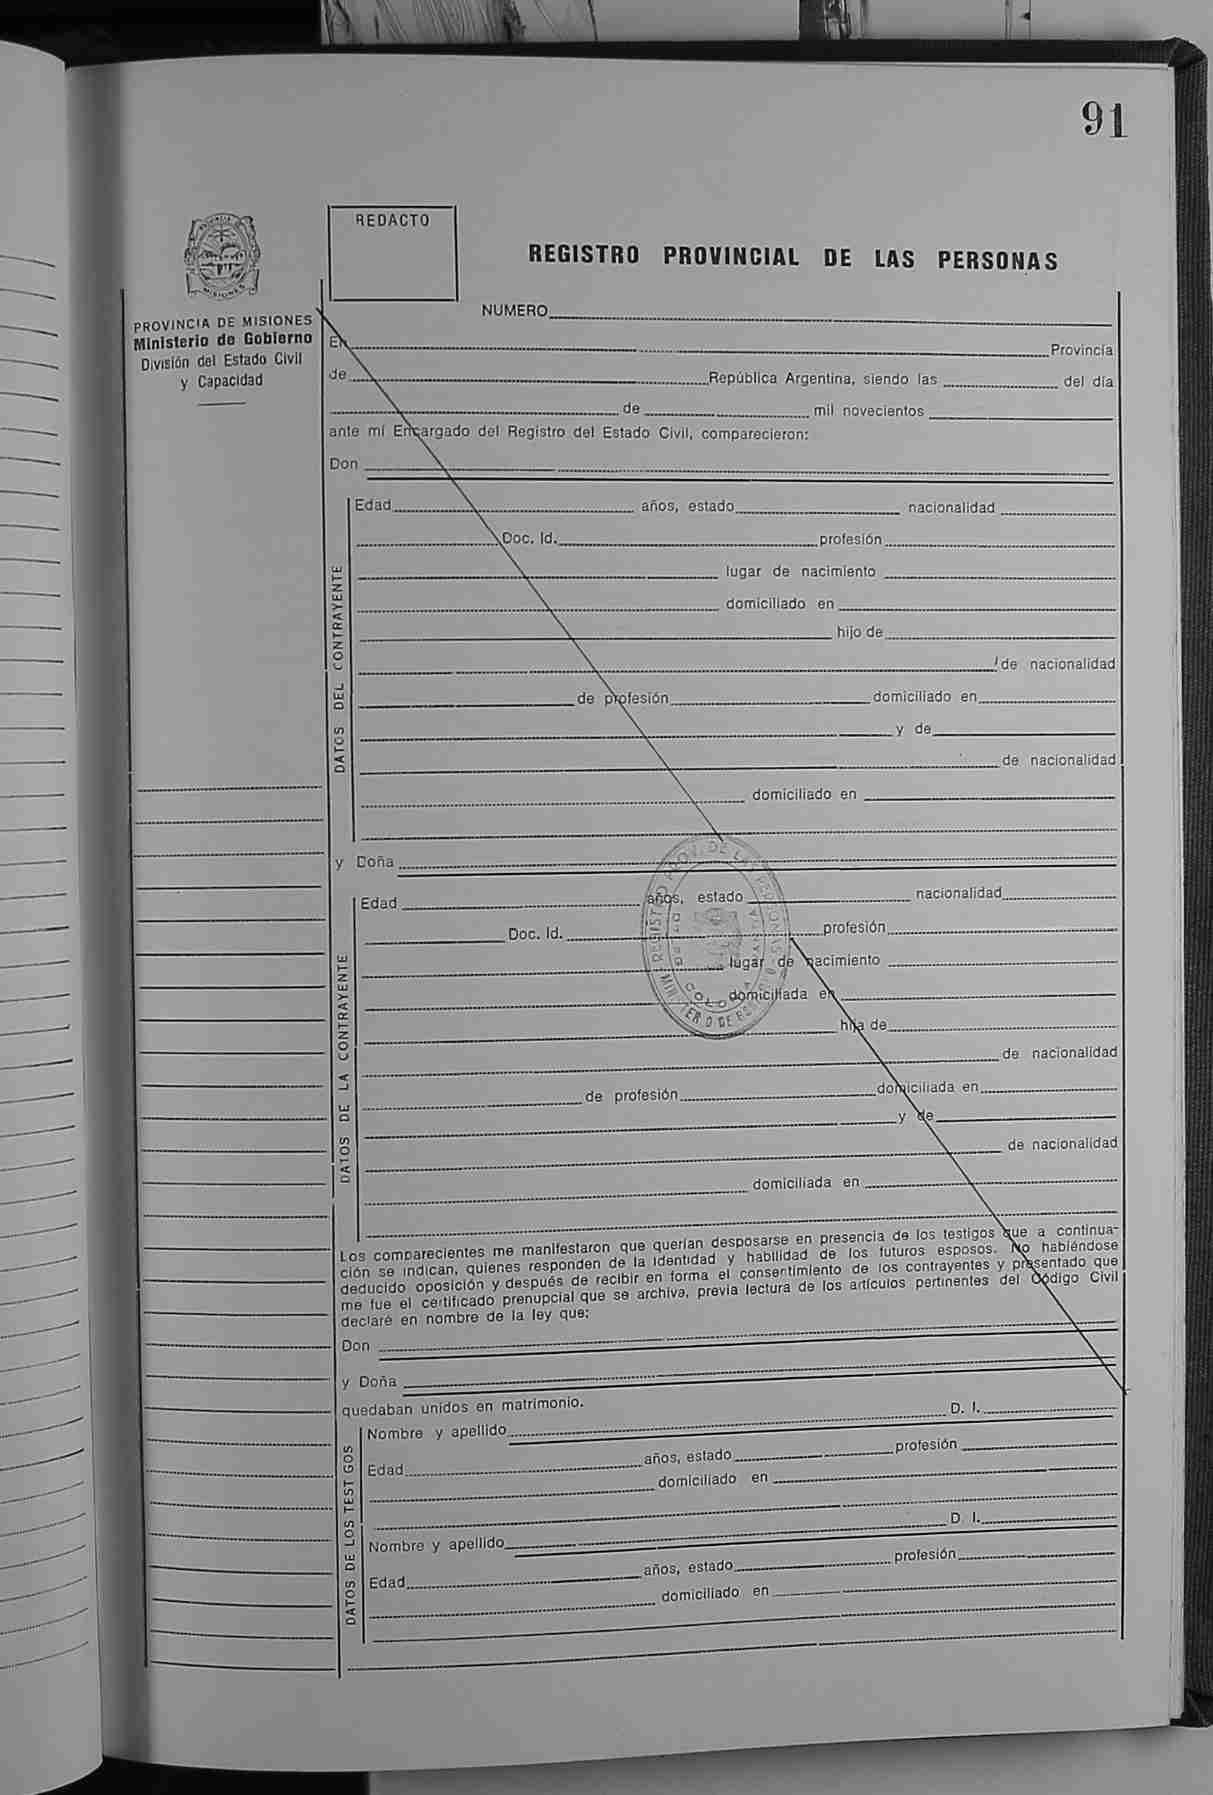 91
REDACTO
REGISTRO PROVINCIAL DE LAS PERSONAS
MISIONES
PROVINCIA DE MISIONES
Ministerio de Gobierno
División del Estado Civil
y Capacidad
NUMERO
En Provincia
de República Argentina, siendo las del día
de mil novecientos
ante mí Encargado del Registro del Estado Civil, comparecieron:
Don
DATOS DEL CONTRAYENTE
Edad años, estado nacionalidad
Doc. Id. profesión
lugar de nacimiento
domiciliado en
hijo de
de nacionalidad
de profesión domiciliado en
y de
de nacionalidad
domiciliado en
y Doña
DATOS DE LA CONTRAYENTE
Edad años, estado nacionalidad
Doc. Id. profesión
lugar de nacimiento
domiciliada en
hija de
de nacionalidad
de profesión domiciliada en
y de
de nacionalidad
domiciliada en
REGISTRO PROV. DE LAS PERSONAS
COLONIA
Los comparecientes me manifestaron que querían desposarse en presencia de los testigos que a continua-
ción se indican, quienes responden de la identidad y habilidad de los futuros esposos. No habiéndose
deducido oposición y después de recibir en forma el consentimiento de los contrayentes y presentado que
me fue el certificado prenupcial que se archiva, previa lectura de los artículos pertinentes del Código Civil
declaré en nombre de la ley que:
Don
y Doña
quedaban unidos en matrimonio.
DATOS DE LOS TESTIGOS
Nombre y apellido D. I.
Edad años, estado profesión
domiciliado en
Nombre y apellido D. I.
Edad años, estado profesión
domiciliado en